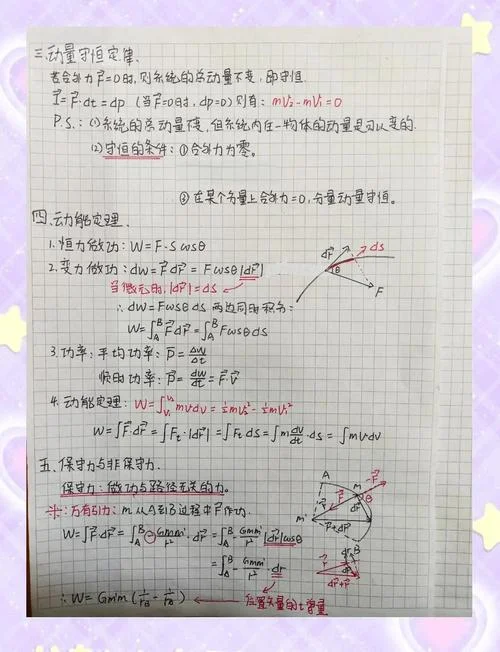 三.动量守恒定律.
若合外力F⃗=0时,则系统的总动量不变,即守恒.
I⃗=F⃗·dt=dp (当F⃗=0时,dp=0)则有:mV₂-mV₁=0
P.S.:(1)系统的总动量不变,但系统内任一物体的动量是可以变的.
(2)守恒的条件:①合外力为零。
②在某个分量上合外力=0,分量动量守恒。
四.动能定理.
1.恒力做功:W=F·S cosθ
2.变力做功:dw=F⃗dr⃗=Fcosθ|dr⃗|
当微元时,|dr⃗|=ds
∴dW=Fcosθds 两边同时积分:
W=∫_A^B F⃗dr⃗=∫_A^B Fcosθds
dr⃗ ds θ F
3.功率:平均功率:P̅=ΔW/Δt
瞬时功率:P̅=dW/dt=F⃗·V⃗
4.动能定理:W=∫_{V₁}^{V₂} mvdv=½mV₂²-½mV₁²
W=∫F⃗·dr⃗=∫Ft·|dr⃗|=∫Ft ds=∫m dv/dt·ds=∫mvdv
五.保守力与非保守力.
保守力:做功与路径无关的力.
※:万有引力:m从A到B过程中F作功.
W=∫F⃗·dr⃗=∫_A^B -Gm'm/r²·dr⃗=∫_A^B -Gm'm/r²|dr⃗|cosθ
=∫_A^B -Gm'm/r²·dr
∴W=Gm'm(1/r_B-1/r_A) 位置矢量的增量
A M -F⃗ θ F⃗ dr⃗ r⃗ m' r⃗+dr⃗ B
r⃗ dr dr⃗ dr⃗+r⃗